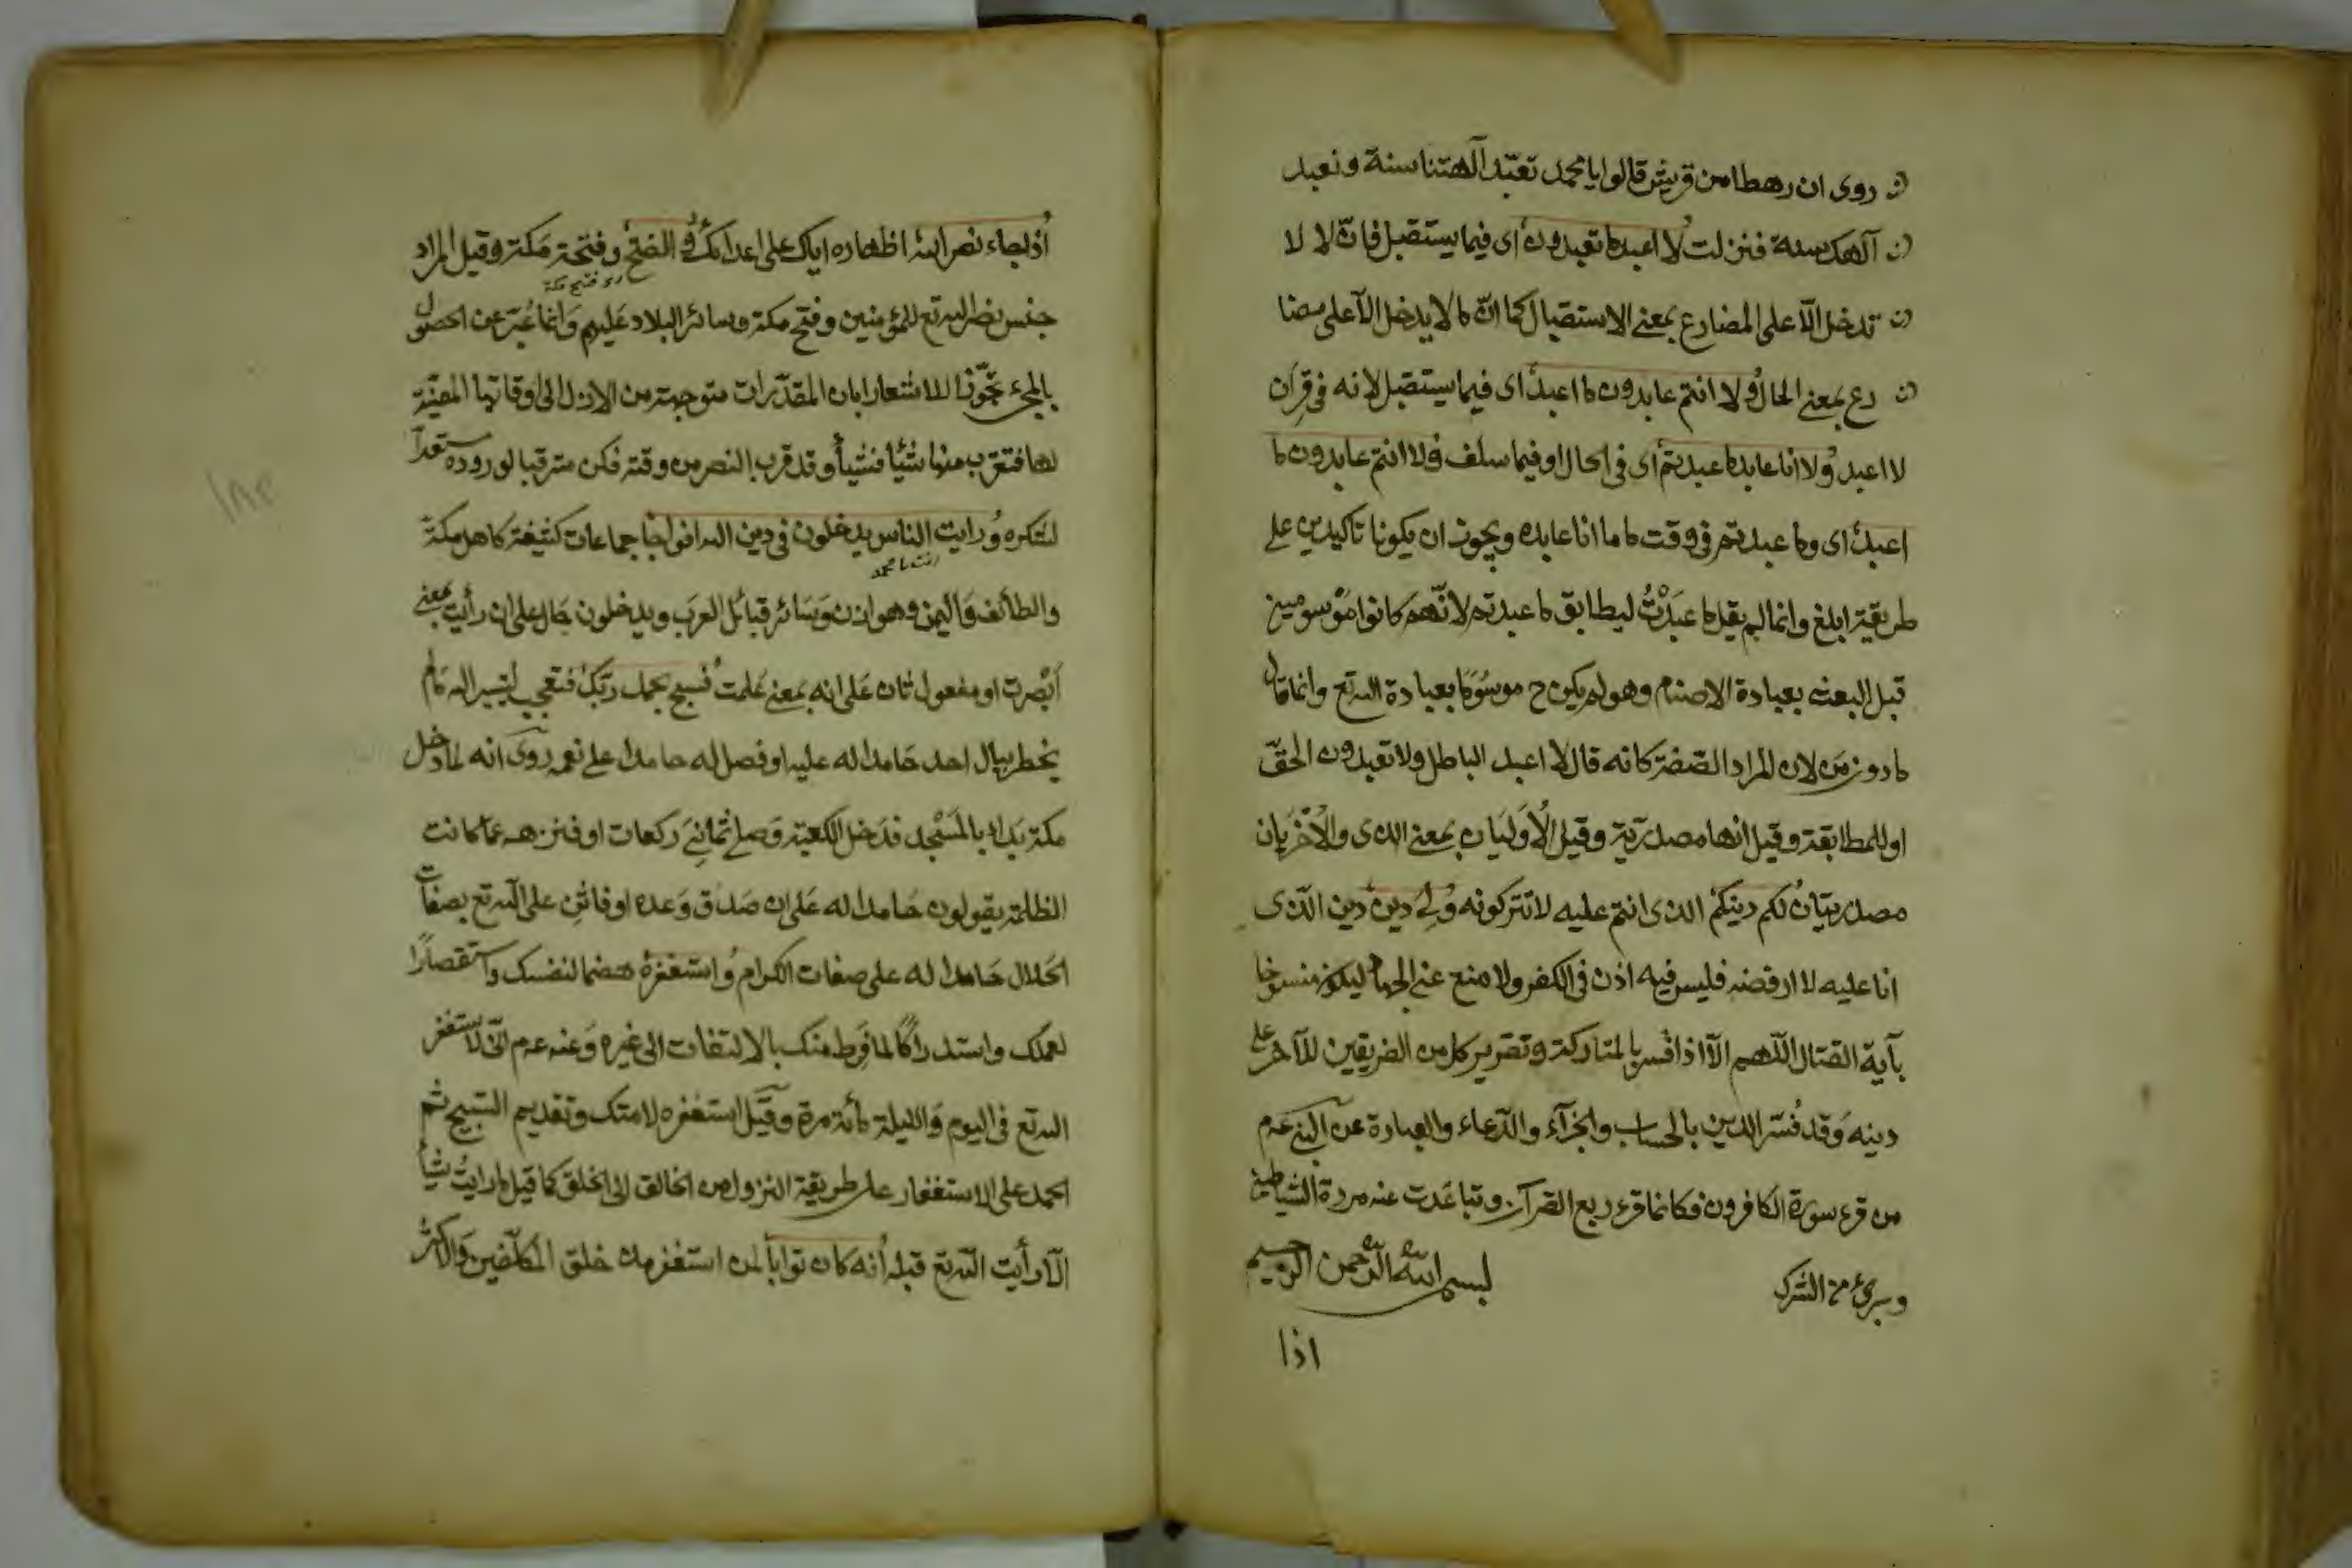 روى ان رهطا من قريش قالوا يا محمد تعبد آلهتنا سنة ونعبد
آلهك سنة فنزلت لا اعبد ما تعبدون اى فيما يستقبل فان لا لا
تدخل الا على المضارع بمعنى الاستقبال كما ان ما لا يدخل الا على مضا
رع بمعنى الحال ولا انتم عابدون ما اعبد اى فيما يستقبل لانه فى قران
لا اعبد ولا انا عابد ما عبدتم اى فى الحال او فيما سلف ولا انتم عابدون ما
اعبد اى وما عبدتم فى وقت ما ما انا عابده ويجوز ان يكونا تاكيدين على
طريقة ابلغ وانما لم يقل ما عبدت ليطابق ما عبدتم لانهم كانوا موسومين
قبل البعثه بعبادة الاصنام وهو لم يكن ح موسوما بعبادة الله تع وانما قال
ما دون من لان المراد الصفة كانه قال لا اعبد الباطل ولا تعبدون الحق
او للمطابقة وقيل انها مصدرية وقيل الاوليان بمعنى الذى والاخريان
مصدريتان لكم دينكم الذى انتم عليه لا تتركونه ولى دين دين الذى
انا عليه لا ارفضه فليس فيه اذن فى الكفر ولا منع عن الجهاد ليكون منسوخا
بآية القتال اللهم الا اذا فسر بالمتاركة وتقرير كل من الفريقين للآخر على
دينه وقد فسر الدين بالحساب والجزآء والدعاء والعبادة عن النبى عم
من قرء سورة الكافرون فكانما قرء ربع القرآن وتباعدت عنه مردة الشياطين
وبرئ من الشرك بسم الله الرحمن الرحيم
اذا
اذا جاء نصر الله اظهاره اياك على اعدائك والفتح وفتح مكة وقيل المراد
جنس نصر الله تع للمؤمنين وفتح مكة وسائر البلاد عليهم وانما عبر عن الحصول
بالمجئ تجوزا للاشعار بان المقدرات متوجهة من الازل الى اوقاتها المعينة
لها فتقرب منها شيئا فشيأ وقد قرب النصر من وقته فكن مترقبا لوروده مستعدا
لشكره ورايت الناس يدخلون فى دين الله افواجا جماعات كثيفة كاهل مكة
والطائف واليمن وهوازن وسائر قبائل العرب ويدخلون حال على ان رأيت بمعنى
ابصرت او مفعول ثان على انه بمعنى علمت فسبح بحمد ربك فتعجب لتيسير الله ما لم
يخطر ببال احد حامدا له عليه او فصل له حامدا على نعمه روى انه لما دخل
مكة بدا بالمسجد فدخل الكعبة وصلى ثمانى ركعات او فنزهه عما كانت
الظلمة يقولون حامدا له على ان صدق وعده او فاثن على الله تع بصفات
الجلال حامدا له على صفات الكرام واستغفره هضما لنفسك واستقصارا
لعملك واستدراكا لما فرط منك بالالتفات الى غيره وعنه عم انى لاستغفر
الله تع فى اليوم والليلة مائة مرة وقيل استغفره لامتك وتقديم التسبيح ثم
الحمد على الاستغفار على طريقة النزول من الخالق الى الخلق كما قيل ما رايت شيأ
الا رأيت الله تع قبله انه كان توابا لمن استغفر منذ خلق المكلفين والاكثر